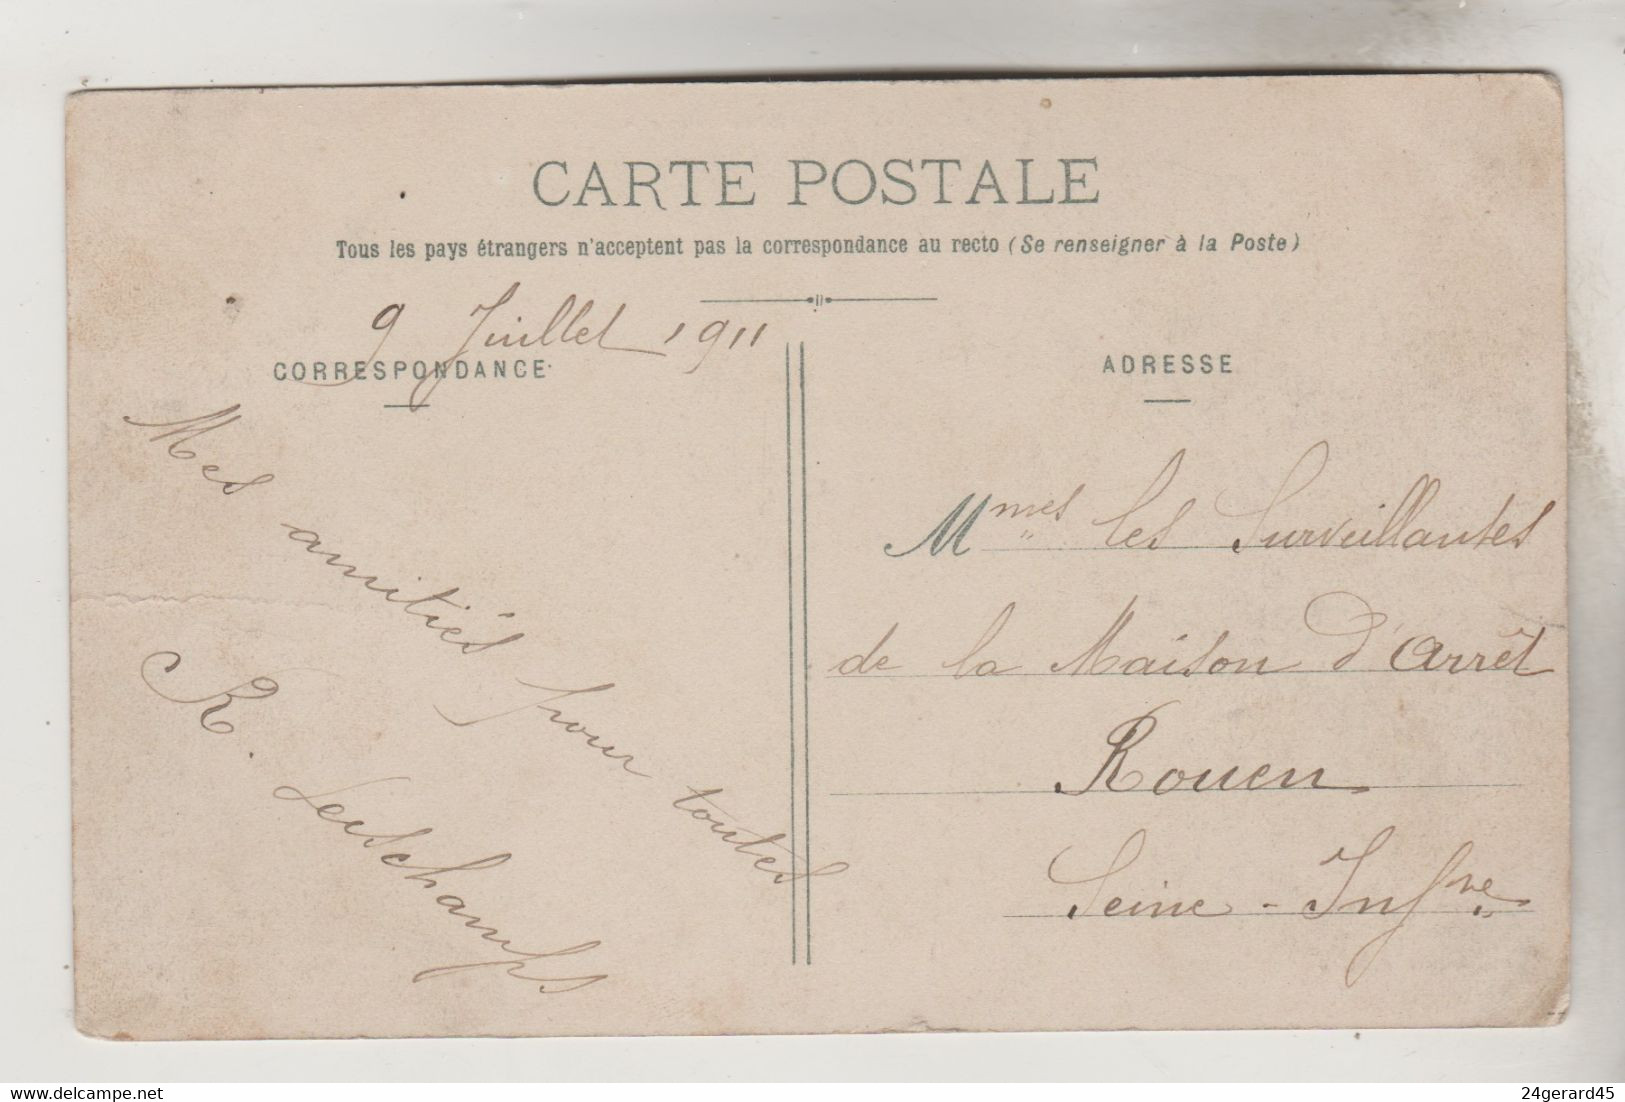 CARTE POSTALE
Tous les pays étrangers n'acceptent pas la correspondance au recto (Se renseigner à la Poste)
9 Juillet 1911
CORRESPONDANCE
Mes amitiés pour toutes
R. Deschamps
ADRESSE
Mmes les Surveillantes
de la Maison d'arrêt
Rouen
Seine-Infre
delcampe.net
24gerard45